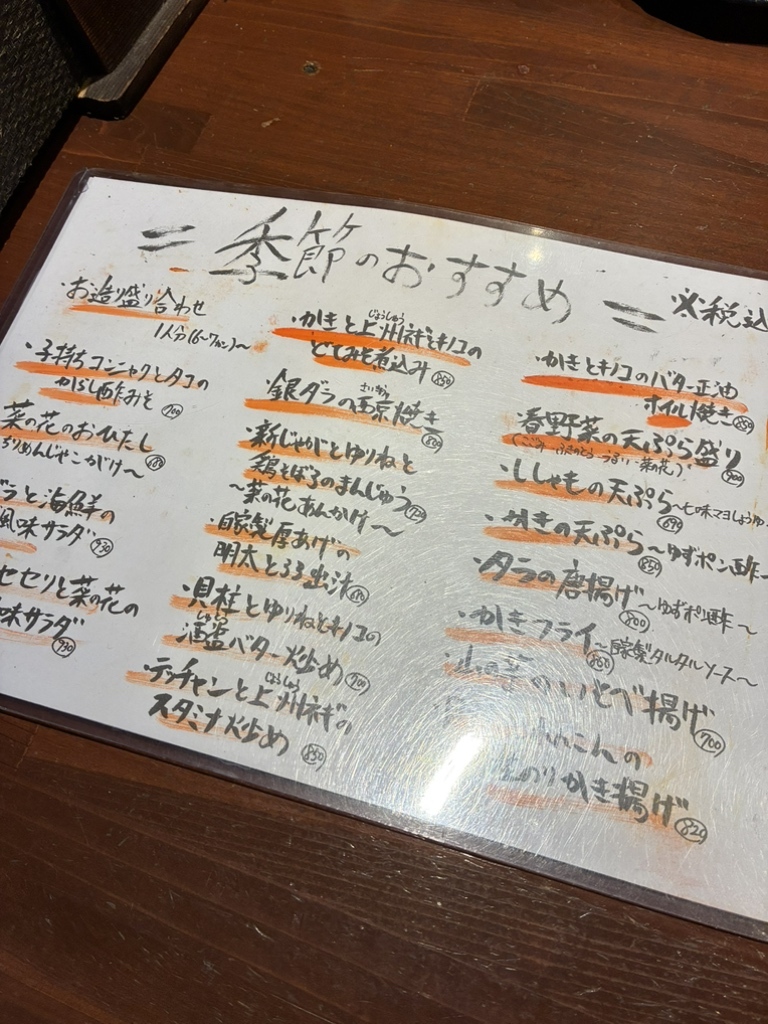 = 季節のおすすめ =
※税込
・お造り盛り合わせ
1人分(6〜7カン)〜
・子持ちコンニャクとタコの
からし酢みそ 700
菜の花のおひたし
ちりめんじゃこがけ〜
と海鮮の
風味サラダ 930
セセリと菜の花の
味サラダ 930
・かきと上州ネギとキノコの
じょうしゅう
どてみそ煮込み 850
・銀ダラの西京焼き
さいきょう
・新じゃがとゆりねと
鶏そぼろのまんじゅう
〜菜の花あんかけ〜
・自家製厚あげの
明太とろろ出汁
・貝柱とゆりねとキノコの
酒盗バター炒め 700
しゅとう
・テッチャンと上州ネギの
じょうしゅう
スタミナ炒め 850
・かきとキノコのバター正油
ホイル焼き 850
・春野菜の天ぷら盛り 900
・ししゃもの天ぷら〜七味マヨしょうゆ
690
・かきの天ぷら〜ゆずポン酢〜
850
・タラの唐揚げ〜ゆずポン酢〜
800
・かきフライ〜自家製タルタルソース〜
860
のいそべ揚げ 700
れんこんの
のりかき揚げ 820